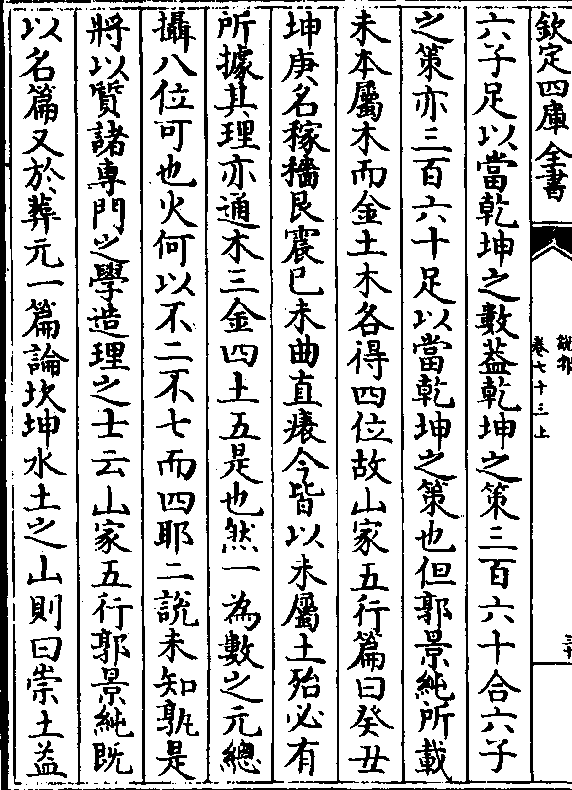 欽定四庫全書
說郛
卷七十三上
六子足以當乾坤之數葢乾坤之策三百六十合六子
之策亦三百六十足以當乾坤之策也但郭景純所載
未本屬木而金土木各得四位故山家五行篇曰癸丑
坤庚名稼穡艮震巳未曲直㾿今皆以未屬土殆必有
所據其理亦通木三金四土五是也然一為數之元總
攝八位可也火何以不二不七而四耶二説未知孰是
將以質諸專門之學造理之士云山家五行郭景純既
以名篇又於葬元一篇論坎坤水土之山則曰崇土葢